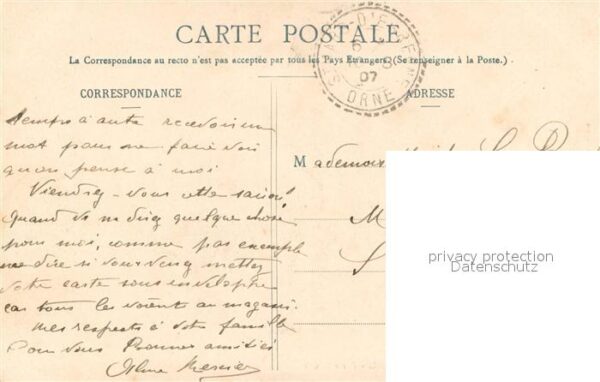 CARTE POSTALE
La Correspondance au recto n'est pas acceptée par tous les Pays Etrangers. (Se renseigner à la Poste.)
CORRESPONDANCE
ADRESSE
D'E
6
07
ORNE
temps à autre recevoir un
mot pour me faire voir
qu'on pense à moi
Viendrez-vous cette saison
Quand vs me direz quelque chose
pour moi, comme par exemple
me dire si vous venez mettez
votre carte sous enveloppe
car tous les voient au magasin.
Mes respects à votre famille
Pour vous Bonnes amitiés
Mademois
M
S
privacy protection
Datenschutz